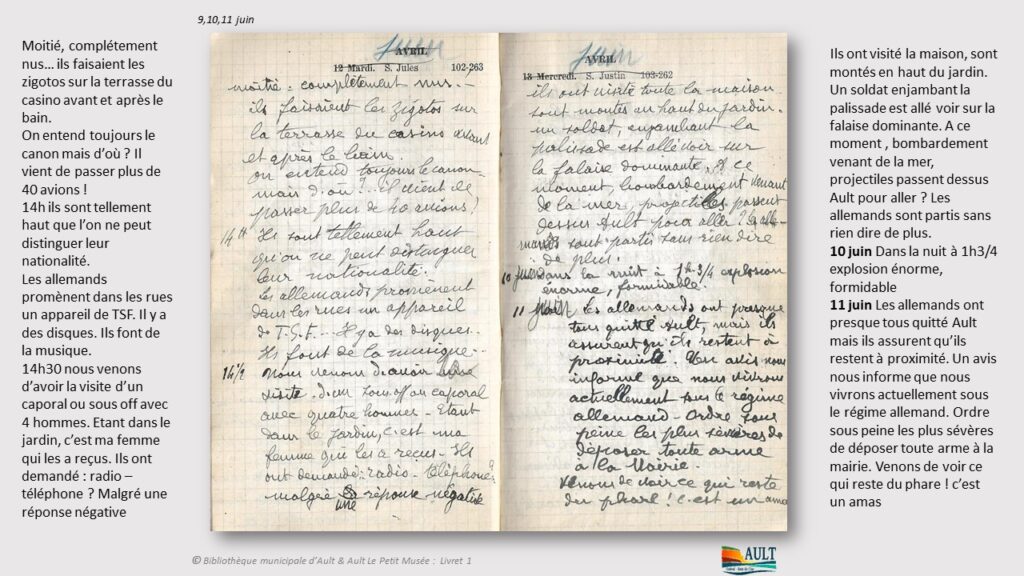 9,10,11 juin
Moitié, complétement
nus… ils faisaient les
zigotos sur la terrasse du
casino avant et après le
bain.
On entend toujours le
canon mais d’où ? Il
vient de passer plus de
40 avions !
14h ils sont tellement
haut que l’on ne peut
distinguer leur
nationalité.
Les allemands
promènent dans les rues
un appareil de TSF. Il y a
des disques. Ils font de
la musique.
14h30 nous venons
d’avoir la visite d’un
caporal ou sous off avec
4 hommes. Etant dans le
jardin, c’est ma femme
qui les a reçus. Ils ont
demandé : radio –
téléphone ? Malgré une
réponse négative
Juin
AVRIL
12 Mardi. S. Jules 102-263
moitié - complètement nus. -
ils faisaient les zigotos sur
la terrasse du casino avant
et après le bain.
on entend toujours le canon -
mais d'où ?.. il vient de
passer plus de 40 avions !
14 h Ils sont tellement haut
qu'on ne peut distinguer
leur nationalité.
Les allemands promènent
dans les rues un appareil
de T.S.F... Il y a des disques.
Ils font de la musique...
14 ½ Nous venons d'avoir
visite d'un sous off ou caporal
avec quatre hommes - Etant
dans le jardin, c'est ma
femme qui les a reçus - Ils
ont demandé : radio - téléphone ?
malgré une réponse négative
Juin
AVRIL
13 Mercredi. S. Justin 103-262
ils ont visité toute la maison
sont montés en haut du jardin.
un soldat, enjambant la
palissade est allé voir sur
la falaise dominante. A ce
moment, bombardement venant
de la mer, projectiles passent
dessus Ault pour aller ? les alle-
mands sont partis sans rien dire
de plus.
10 Juin dans la nuit à 1h 3/4 explosion
énorme, formidable.
11 Juin Les allemands ont presque
tous quitté Ault, mais ils
assurent qu'ils restent à
proximité. Un avis nous
informe que nous vivrons
actuellement sur le régime
allemand - Ordre sous
peine les plus sévères de
déposer toute arme
à la Mairie.
Venons de voir ce qui reste
du phare ! c'est un amas
Ils ont visité la maison, sont
montés en haut du jardin.
Un soldat enjambant la
palissade est allé voir sur la
falaise dominante. A ce
moment , bombardement
venant de la mer,
projectiles passent dessus
Ault pour aller ? Les
allemands sont partis sans
rien dire de plus.
10 juin Dans la nuit à 1h3/4
explosion énorme,
formidable
11 juin Les allemands ont
presque tous quitté Ault
mais ils assurent qu’ils
restent à proximité. Un avis
nous informe que nous
vivrons actuellement sous
le régime allemand. Ordre
sous peine les plus sévères
de déposer toute arme à la
mairie. Venons de voir ce
qui reste du phare ! c’est
un amas
© Bibliothèque municipale d’Ault & Ault Le Petit Musée : Livret 1
AULT